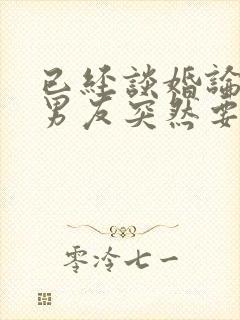 已經談婚論
男友突然要
零冷七一